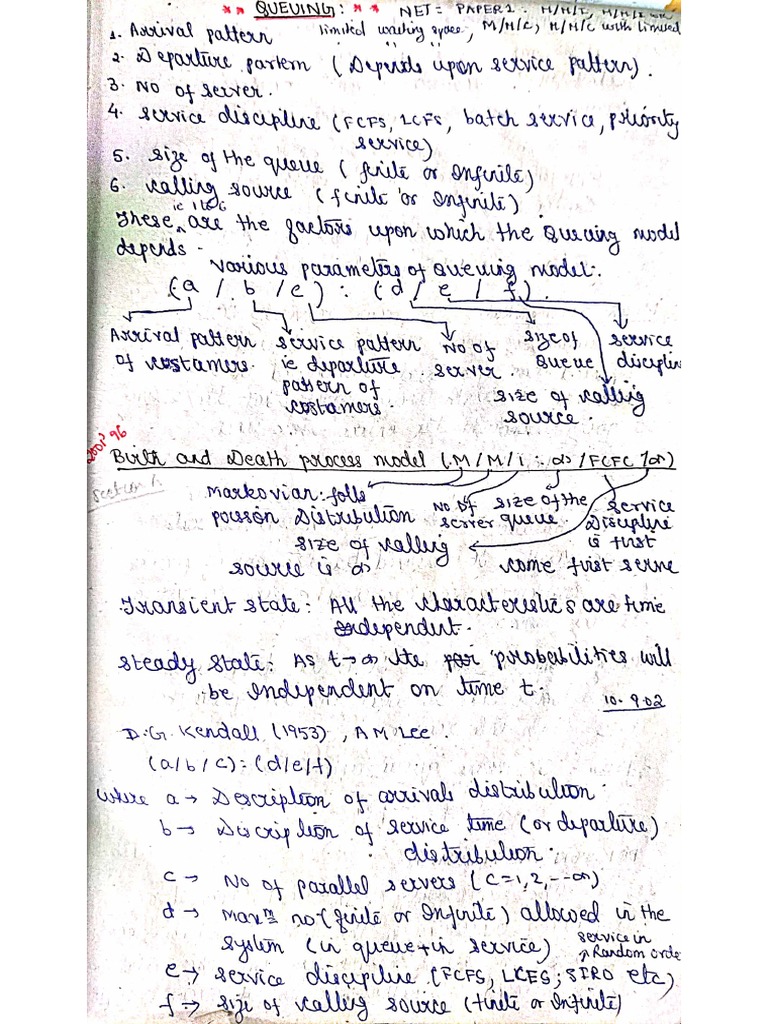 ** QUEUING: ** NET= PAPER 2: M/M/1, M/M/1 with
limited waiting space, M/M/C, M/M/C with limited
1. Arrival pattern
2. Departure partern (Depends upon service pattern).
3. NO of server.
4. Service discipline (FCFS, LCFS, batch service, priority
service)
5. Size of the queue (finite or Infinite)
6. Calling source (finite or Infinite).
ie 1 to 6
These are the factors upon which the Queuing model
depends.
Various parameters of Queuing model:.
(a / b / c) : (d / e / f).
Arrival pattern service pattern No of size of service
of costamers. ie departure server. Queue discipline
pattern of size of calling
costamers. source.
2001, 96
Birth and Death process model (M/M/1 : ∞/FCFC/∞)
Section A
Markovian: folls No of size of the service
poisson Distribution server queue. Discipline
size of calling is first
source is ∞ come first serve
Transient state: All the characteristics are time
dependent.
Steady state: As t→∞ the probabilities will
be Independent on time t.
10.9.02
D.G. Kendall (1953), A M Lee.
(a/b/c):(d/e/f)
where a → Description of arrivals distribution.
b → Discription of service time (or departure)
distribution.
c → No of parallel servers (c=1,2,--∞)
d → Maxm no (finite or Infinite) allowed in the
system (in queue + in service)
service in Random order
e → service discipline (FCFS, LCFS, SIRO etc)
f → size of calling source (finite or Infinite)